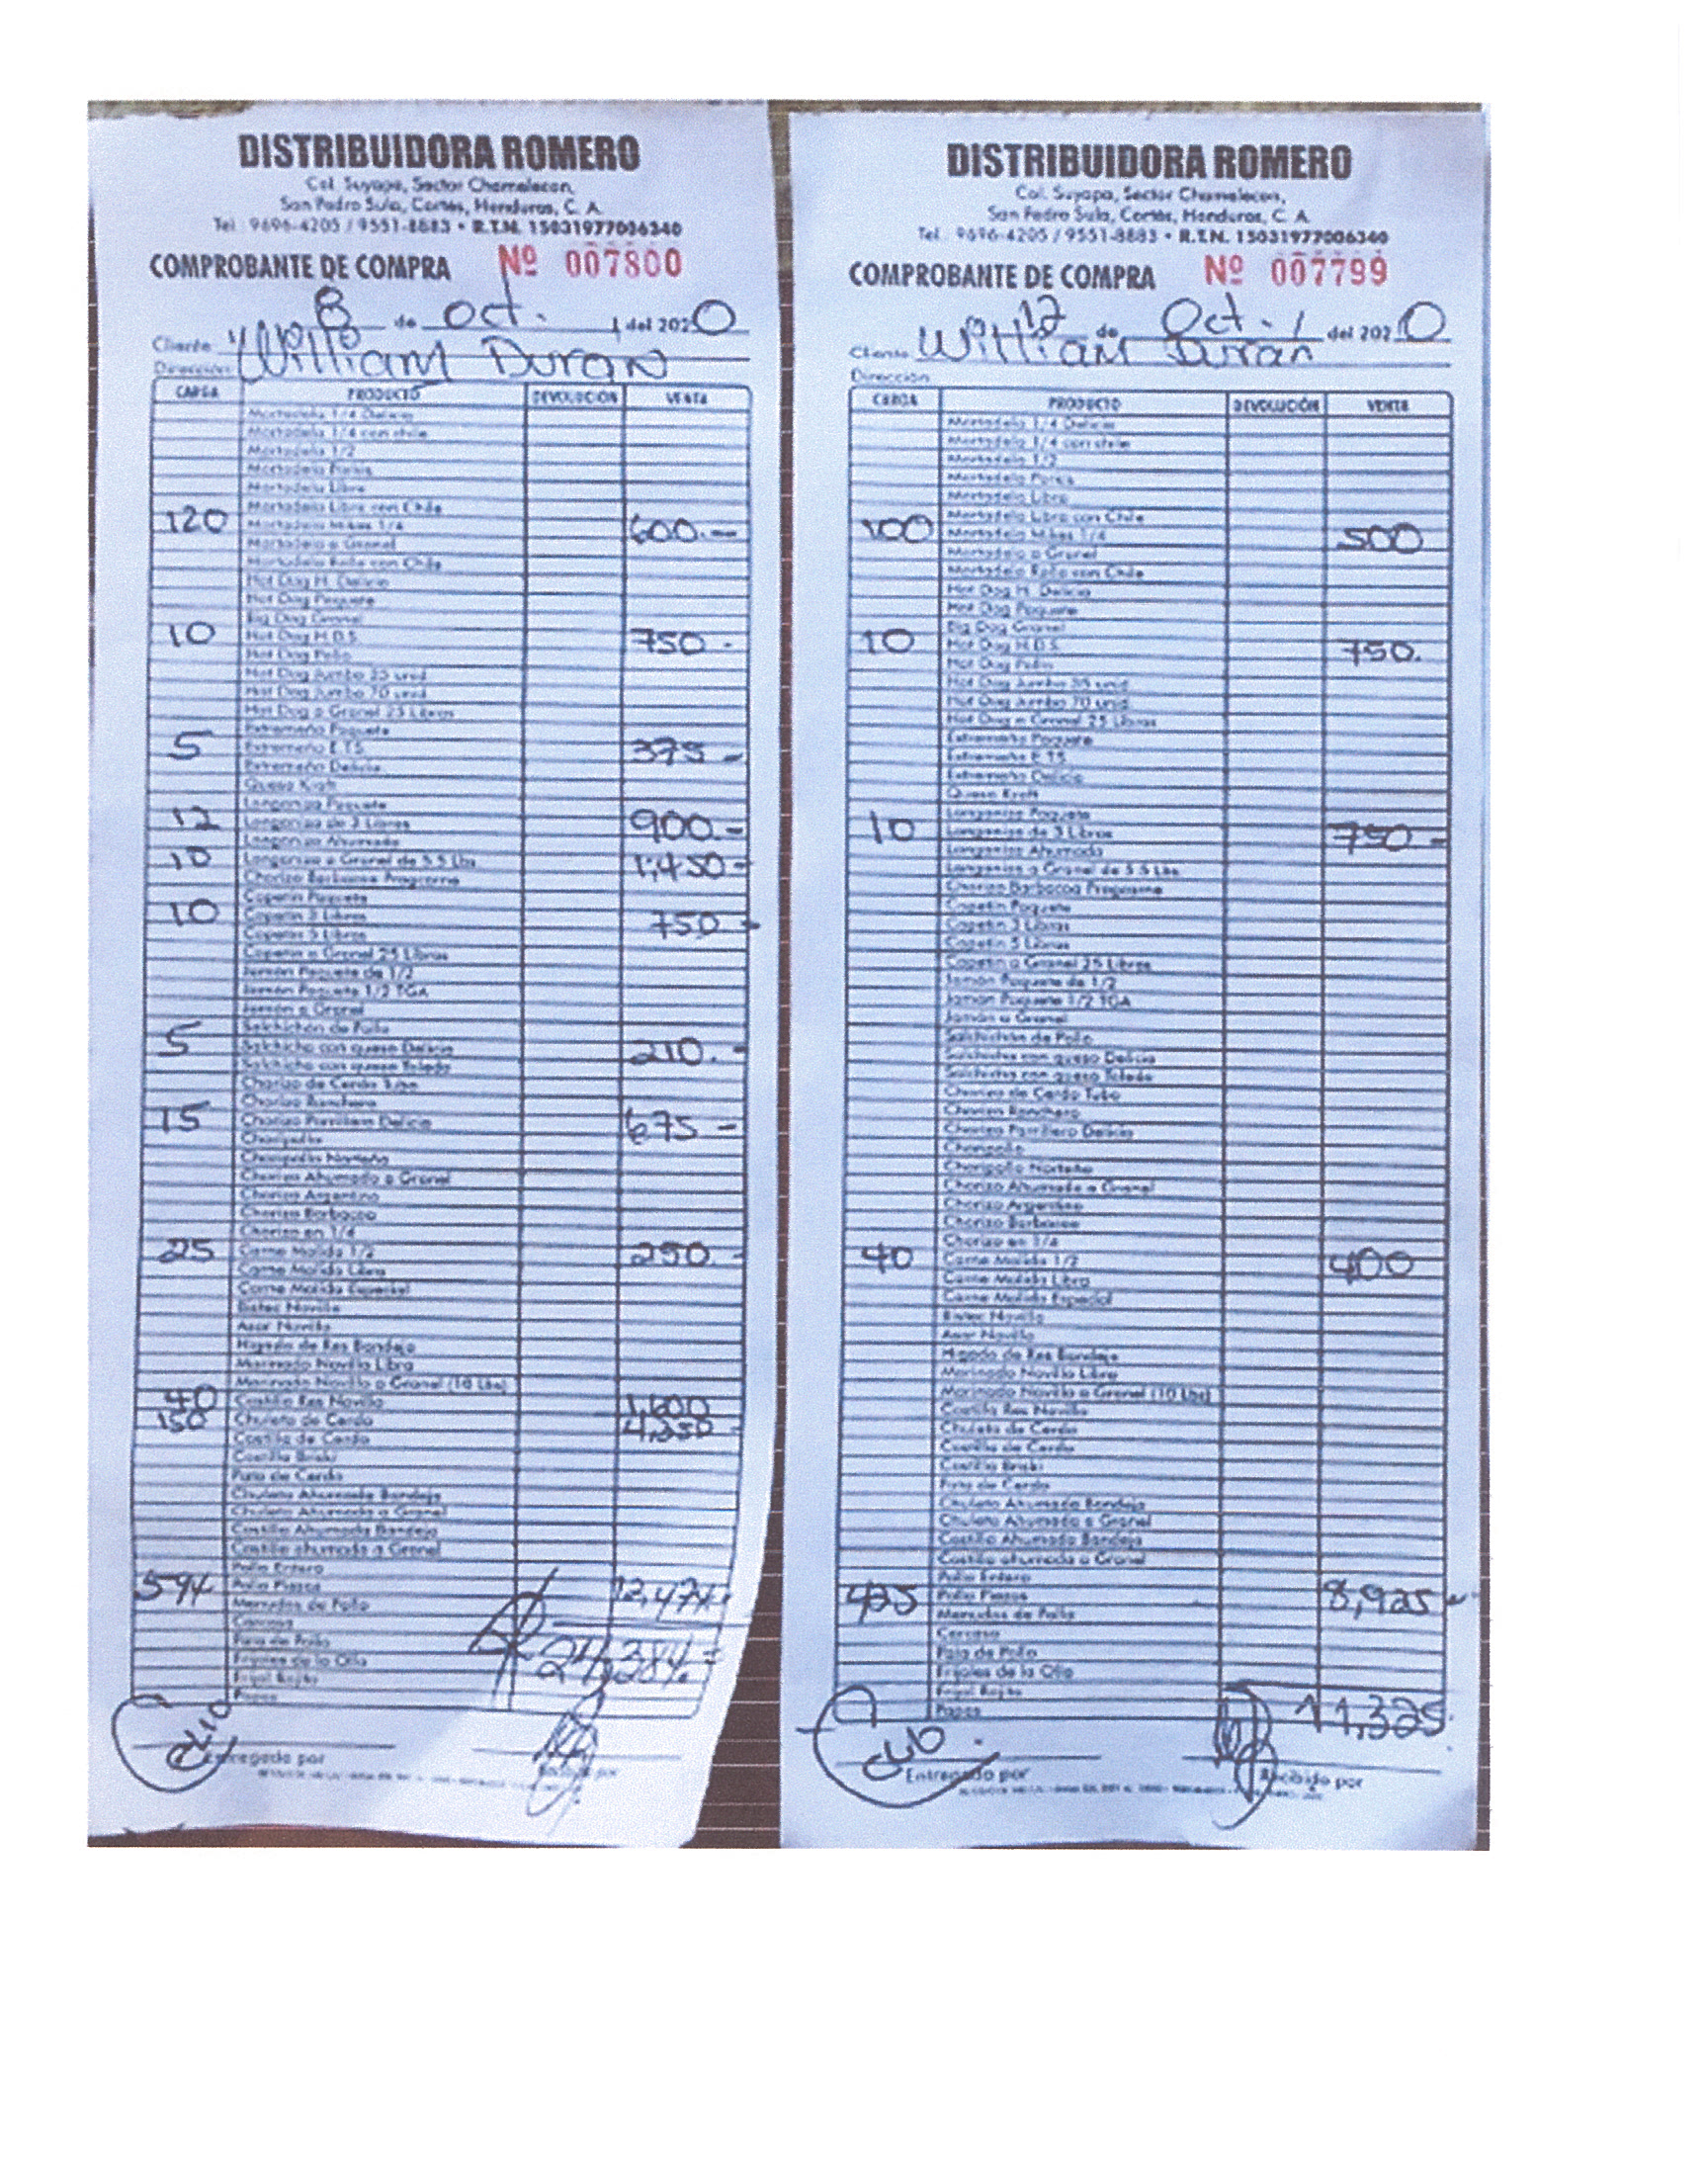 DISTRIBUIDORA ROMERO
Col. Suyapa, Sector Chamelecon,
San Pedro Sula, Cortés, Honduras, C. A.
Tel. 9696-4205 / 9551-8883 • R.T.N. 15031977006340
COMPROBANTE DE COMPRA Nº 007800
8 de oct. del 2020
Cliente William Duran
Dirección
CARGA PRODUCTO DEVOLUCIÓN VENTA
Mortadela 1/4 Delicia
Mortadela 1/4 con chile
Mortadela 1/2
Mortadela
Mortadela Libra
Mortadela Libra con Chile
120 Mortadela 1/4 600.-
Mortadela a Granel
Mortadela Rollo con Chile
Hot Dog H. Delicia
Hot Dog Paquete
Big Dog Granel
10 Hot Dog H.D.S. 750 -
Hot Dog Pollo
Hot Dog Jumbo 35 unid
Hot Dog Jumbo 70 unid
Hot Dog a Granel 25 Libras
Extremeño Paquete
5 Extremeño E.T.S. 375 -
Extremeño Delicia
Queso Kraft
Longaniza Paquete
12 Longaniza de 3 Libras 900.-
Longaniza Ahumada
10 Longaniza a Granel de 5.5 Lbs 1,450-
Chorizo Barbacoa Programa
Copetín Paquete
10 Copetín 3 Libras 750 -
Copetín 5 Libras
Copetín a Granel 25 Libras
Jamón Paquete de 1/2
Jamón Paquete 1/2 TGA
Jamón a Granel
Salchichón de Pollo
5 Salchicha con queso Delicia 210. -
Salchicha con queso Toledo
Chorizo de Cerdo Tubo
Chorizo Ranchero
15 Chorizo Parrillero Delicia 675 -
Choripollo
Choripollo Norteño
Chorizo Ahumado a Granel
Chorizo Argentino
Chorizo Barbacoa
Chorizo en 1/4
25 Carne Molida 1/2 250. -
Carne Molida Libra
Carne Molida Especial
Bistec Novillo
Asar Novillo
Higado de Res Bandeja
Marinado Novillo Libra
Marinado Novillo a Granel (10 Lbs)
40 Costilla Res Novillo 1,600
150 Chuleta de Cerdo 4,350 -
Costilla de Cerdo
Costilla Briski
Pata de Cerdo
Chuleta Ahumada Bandeja
Chuleta Ahumada a Granel
Costilla Ahumada Bandeja
Costilla ahumada a Granel
Pollo Entero
594 Pollo Piezas 12,474.
Menudos de Pollo
Carcasa
Pata de Pollo
Frijoles de la Olla 24,384.=
Frijol Rojito
Papas
Entregado por Recibido por
DISTRIBUIDORA ROMERO
Col. Suyapa, Sector Chamelecon,
San Pedro Sula, Cortés, Honduras, C. A.
Tel. 9696-4205 / 9551-8883 • R.T.N. 15031977006340
COMPROBANTE DE COMPRA Nº 007799
12 de Oct. del 2020
Cliente William Duran
Dirección
CARGA PRODUCTO DEVOLUCIÓN VENTA
Mortadela 1/4 Delicia
Mortadela 1/4 con chile
Mortadela 1/2
Mortadela
Mortadela Libra
Mortadela Libra con Chile
100 Mortadela 1/4 500
Mortadela a Granel
Mortadela Rollo con Chile
Hot Dog H. Delicia
Hot Dog Paquete
Big Dog Granel
10 Hot Dog H.D.S. 750.
Hot Dog Pollo
Hot Dog Jumbo 35 unid
Hot Dog Jumbo 70 unid
Hot Dog a Granel 25 Libras
Extremeño Paquete
Extremeño E.T.S.
Extremeño Delicia
Queso Kraft
Longaniza Paquete
10 Longaniza de 3 Libras 750 -
Longaniza Ahumada
Longaniza a Granel de 5.5 Lbs
Chorizo Barbacoa Programa
Copetín Paquete
Copetín 3 Libras
Copetín 5 Libras
Copetín a Granel 25 Libras
Jamón Paquete de 1/2
Jamón Paquete 1/2 TGA
Jamón a Granel
Salchichón de Pollo
Salchicha con queso Delicia
Salchicha con queso Toledo
Chorizo de Cerdo Tubo
Chorizo Ranchero
Chorizo Parrillero Delicia
Choripollo
Choripollo Norteño
Chorizo Ahumado a Granel
Chorizo Argentino
Chorizo Barbacoa
Chorizo en 1/4
40 Carne Molida 1/2 400
Carne Molida Libra
Carne Molida Especial
Bistec Novillo
Asar Novillo
Higado de Res Bandeja
Marinado Novillo Libra
Marinado Novillo a Granel (10 Lbs)
Costilla Res Novillo
Chuleta de Cerdo
Costilla de Cerdo
Costilla Briski
Pata de Cerdo
Chuleta Ahumada Bandeja
Chuleta Ahumada a Granel
Costilla Ahumada Bandeja
Costilla ahumada a Granel
Pollo Entero
425 Pollo Piezas 8,925
Menudos de Pollo
Carcasa
Pata de Pollo
Frijoles de la Olla
Frijol Rojito
Papas 11,325.
Entregado por Recibido por